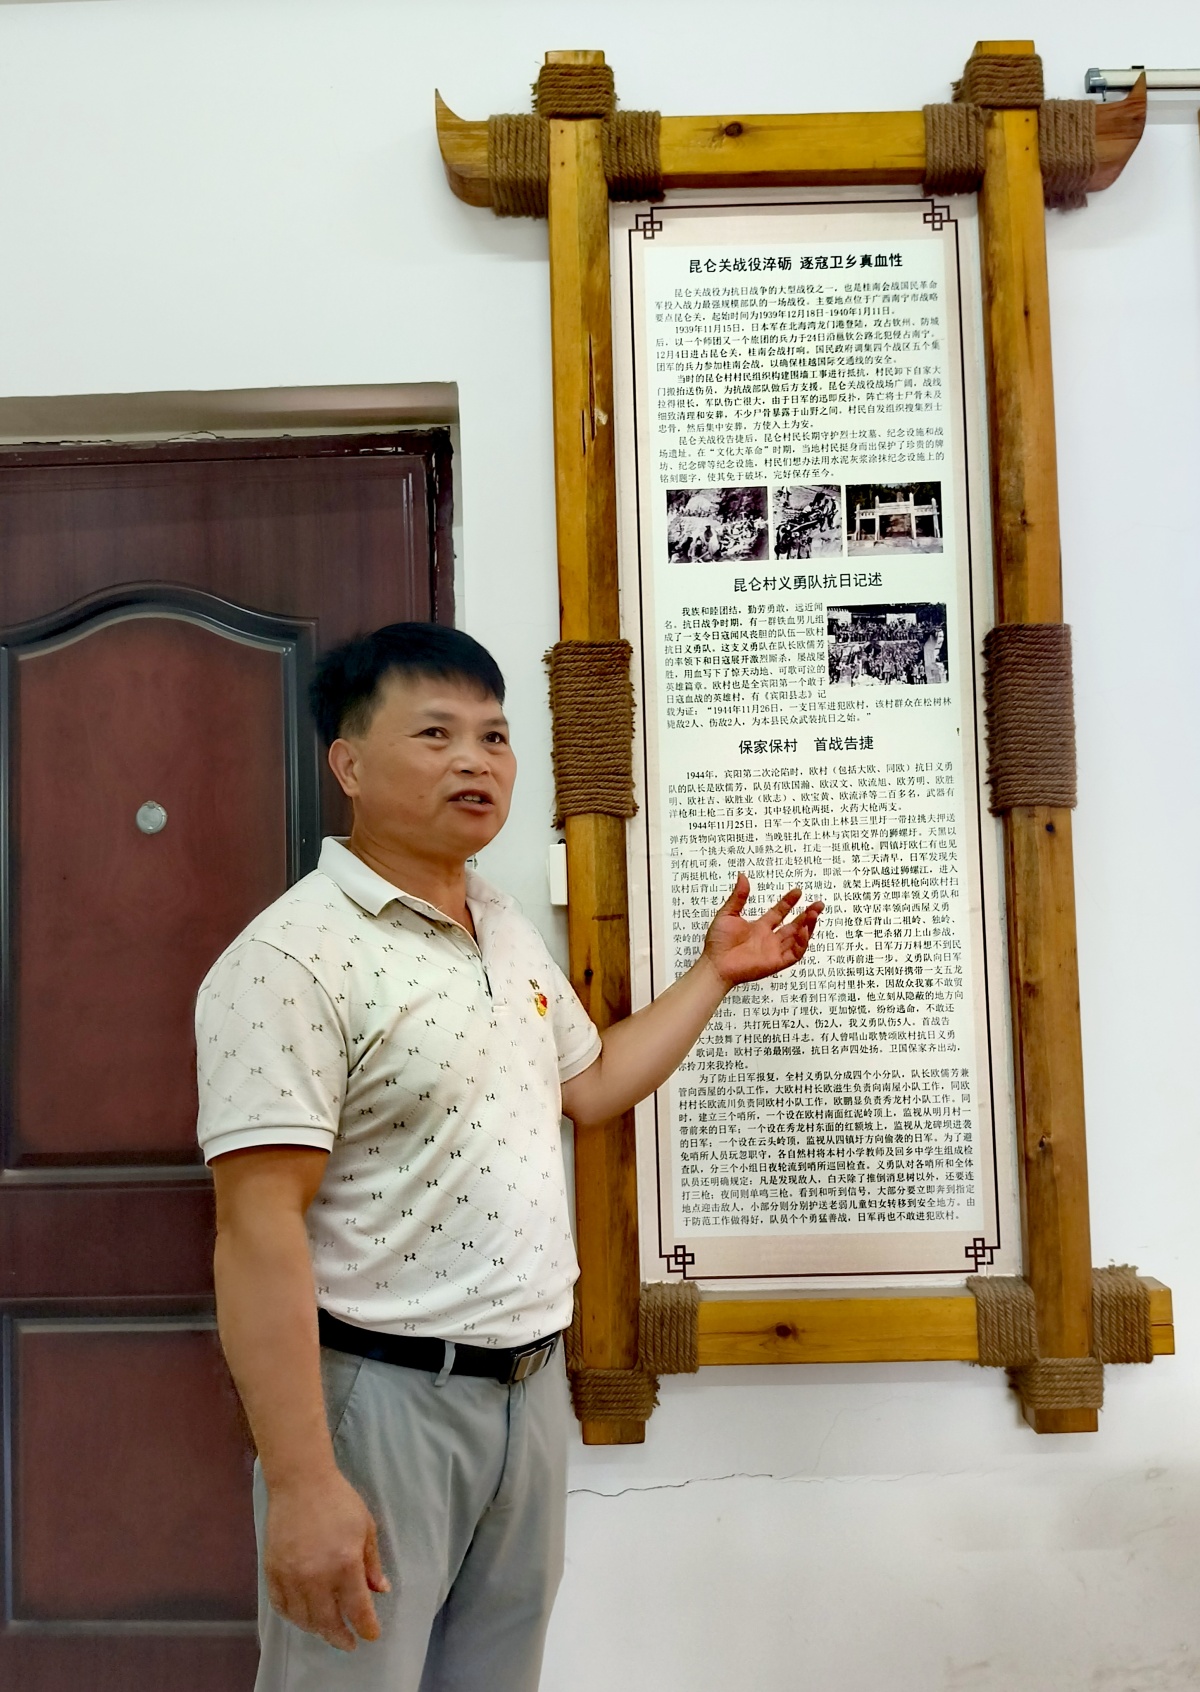 昆仑关战役淬砺 逐寇卫乡真血性
昆仑关战役为抗日战争的大型战役之一，也是桂南会战国民革命
军投入战力最强规模部队的一场战役。主要地点位于广西南宁市战略
要点昆仑关，起始时间为1939年12月18日-1940年1月11日。
1939年11月15日，日本军在北海湾龙门港登陆，攻占钦州、防城
后，以一个师团又一个旅团的兵力于24日沿邕钦公路北犯侵占南宁。
12月4日进占昆仑关，桂南会战打响。国民政府调集四个战区五个集
团军的兵力参加桂南会战，以确保桂越国际交通线的安全。
当时的昆仑村村民组织构建围墙工事进行抵抗，村民卸下自家大
门搬抬送伤员，为抗战部队做后方支援。昆仑关战役战场广阔，战线
拉得很长，军队伤亡很大，由于日军的迅即反扑，阵亡将士尸骨未及
细致清理和安葬，不少尸骨暴露于山野之间，村民自发组织搜集烈士
忠骨，然后集中安葬，方使入土为安。
昆仑关战役告捷后，昆仑村民长期守护烈士坟墓、纪念设施和战
场遗址。在“文化大革命”时期，当地村民挺身而出保护了珍贵的牌
坊、纪念碑等纪念设施，村民们想办法用水泥灰浆涂抹纪念设施上的
铭刻题字，使其免于破坏，完好保存至今。
昆仑村义勇队抗日记述
我族和睦团结，勤劳勇敢，远近闻
名。抗日战争时期，有一群铁血男儿组
成了一支令日寇闻风丧胆的队伍—欧村
抗日义勇队。这支义勇队在队长欧儒芳
的率领下和日寇展开激烈厮杀，屡战屡
胜，用血写下了惊天动地、可歌可泣的
英雄篇章。欧村也是全宾阳第一个敢于
日寇血战的英雄村，有《宾阳县志》记
载为证：“1944年11月26日，一支日军进犯欧村，该村群众在松树林
毙敌2人、伤敌2人，为本县民众武装抗日之始。”
保家保村 首战告捷
1944年，宾阳第二次沦陷时，欧村（包括大欧、同欧）抗日义勇
队的队长是欧儒芳，队员有欧国瀚、欧汉文、欧流旭、欧芳明、欧胜
明、欧社吉、欧胜业（欧志）、欧宝黄、欧流泽等二百多名，武器有
洋枪和土枪二百多支，其中轻机枪两挺，火药大枪两支。
1944年11月25日，日军一个支队由上林县三里圩一带拉挑夫押送
弹药货物向宾阳挺进，当晚驻扎在上林与宾阳交界的狮螺圩。天黑以
后，一个挑夫乘敌人睡熟之机，扛走一挺重机枪。四镇圩欧仁有也见
到有机可乘，便潜入敌营扛走轻机枪一挺。第二天清早，日军发现失
了两挺机枪，怀疑是欧村民众所为，即派一个分队越过狮螺江，进入
欧村后背山二祖 独岭山下窑窝塘边，就架上两挺轻机枪向欧村扫
射，牧牛老人 被日军 这时，队长欧儒芳立即率领义勇队和
村民全面出 欧滋生 向南 勇队，欧守居率领向西屋义勇
队，欧流 个方向抢登后背山二祖岭、独岭、
荣岭的 没有枪，也拿一把杀猪刀上山参战，
义勇队 地的日军开火。日军万万料想不到民
众敢 情况，不敢再前进一步，义勇队向日军
猛 退，义勇队队员欧振明这天刚好携带一支五龙
外劳动，初时见到日军向村里扑来，因故众我寡不敢贸
时隐蔽起来，后来看到日军溃退，他立刻从隐蔽的地方向
射击，日军以为中了埋伏，更加惊慌，纷纷逃命，不敢还
次战斗，共打死日军2人、伤2人，我义勇队伤5人，首战告
大大鼓舞了村民的抗日斗志。有人曾唱山歌赞颂欧村抗日义勇
歌词是：欧村子弟最刚强，抗日名声四处扬。卫国保家齐出动，
你拎刀来我拎枪。
为了防止日军报复，全村义勇队分成四个小分队，队长欧儒芳兼
管向西屋的小队工作，大欧村村长欧滋生负责向南屋小队工作，同欧
村村长欧流川负责同欧村小队工作，欧鹏显负责秀龙村小队工作。同
时，建立三个哨所，一个设在欧村南面红泥岭顶上，监视从明月村一
带前来的日军；一个设在秀龙村东面的红额坡上，监视从龙碑坝进袭
的日军；一个设在云头岭顶，监视从四镇圩方向偷袭的日军。为了避
免哨所人员玩忽职守，各自然村将本村小学教师及回乡中学生组成检
查队，分三个小组日夜轮流到哨所巡回检查。义勇队对各哨所和全体
队员还明确规定：凡是发现敌人，白天除了推倒消息树以外，还要连
打三枪；夜间则单鸣三枪。看到和听到信号，大部分要立即奔到指定
地点迎击敌人，小部分则分别护送老弱儿童妇女转移到安全地方。由
于防范工作做得好，队员个个勇猛善战，日军再也不敢进犯欧村。